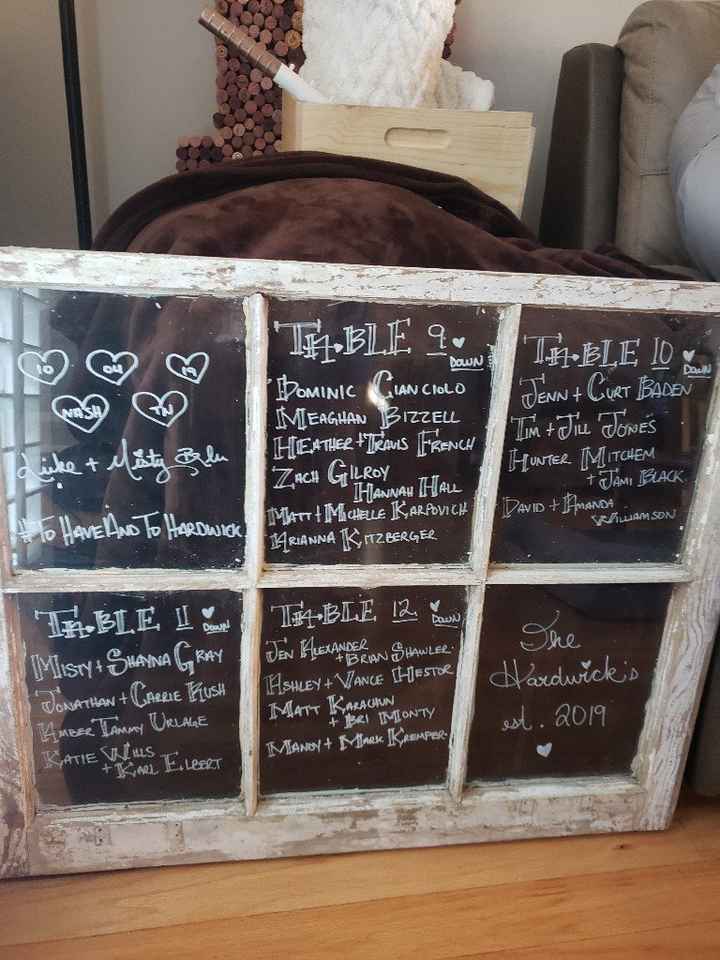 10 04 19
NASH TN
Luke + Misty Blu
#ToHaveAndToHardwick
TABLE 9
DOWN
DOMINIC CIANCIOLO
MEAGHAN BIZZELL
HEATHER + TRAVIS FRENCH
ZACH GILROY
HANNAH HALL
MATT + MICHELLE KARPOVICH
ARIANNA KITZBERGER
TABLE 10
DOWN
JENN + CURT BADEN
TIM + JILL JONES
HUNTER MITCHEM
+ JAMI BLACK
DAVID + AMANDA
WILLIAMSON
TABLE 11
DOWN
MISTY + SHAYNA GRAY
JONATHAN + CARRIE RUSH
AMBER TAMMY URLAGE
KATIE WILLS
+ KARL ELBERT
TABLE 12
DOWN
JEN ALEXANDER
+ BRIAN SHAWLER
ASHLEY + VANCE HESTOR
MATT KARACHUN
+ BRI MONTY
MANDY + MARK KREMPER
The
Hardwick's
est. 2019